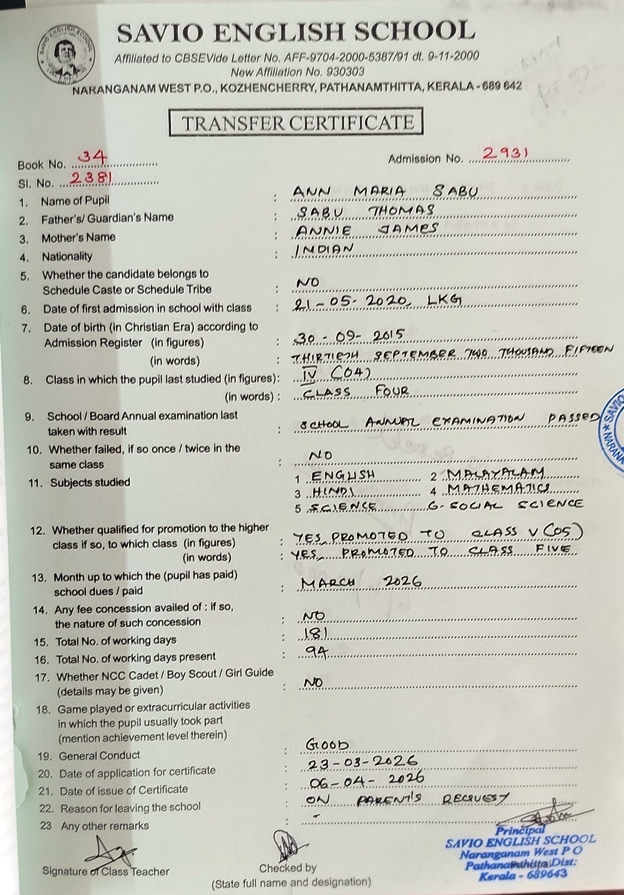 SAVIO ENGLISH SCHOOL
Affiliated to CBSEVide Letter No. AFF-9704-2000-5387/91 dt. 9-11-2000
New Affiliation No. 930303
NARANGANAM WEST P.O., KOZHENCHERRY, PATHANAMTHITTA, KERALA - 689 642
TRANSFER CERTIFICATE
Book No. 34
Admission No. 2931
Sl. No. 2381
1. Name of Pupil : ANN MARIA SABU
2. Father's/ Guardian's Name : SABU THOMAS
3. Mother's Name : ANNIE JAMES
4. Nationality : INDIAN
5. Whether the candidate belongs to
Schedule Caste or Schedule Tribe : NO
6. Date of first admission in school with class : 21-05-2020, LKG
7. Date of birth (in Christian Era) according to
Admission Register (in figures) : 30-09-2015
(in words) : THIRTIETH SEPTEMBER TWO THOUSAND FIFTEEN
8. Class in which the pupil last studied (in figures): IV (04)
(in words) : CLASS FOUR
9. School / Board Annual examination last
taken with result : SCHOOL ANNUAL EXAMINATION PASSED
10. Whether failed, if so once / twice in the
same class : NO
11. Subjects studied : 1 ENGLISH 2 MALAYALAM
3 HINDI 4 MATHEMATICS
5 SCIENCE 6- SOCIAL SCIENCE
12. Whether qualified for promotion to the higher
class if so, to which class (in figures) : YES, PROMOTED TO CLASS V (05)
(in words) : YES, PROMOTED TO CLASS FIVE
13. Month up to which the (pupil has paid)
school dues / paid : MARCH 2026
14. Any fee concession availed of : if so,
the nature of such concession : NO
15. Total No. of working days : 181
16. Total No. of working days present : 94
17. Whether NCC Cadet / Boy Scout / Girl Guide
(details may be given) : NO
18. Game played or extracurricular activities
in which the pupil usually took part
(mention achievement level therein) :
19. General Conduct : GOOD
20. Date of application for certificate : 23-03-2026
21. Date of issue of Certificate : 06-04-2026
22. Reason for leaving the school : ON PARENT'S REQUEST
23 Any other remarks : -
Principal
SAVIO ENGLISH SCHOOL
Naranganam West P O
Pathanamthitta Dist:
Kerala - 689643
Signature of Class Teacher
Checked by
(State full name and designation)